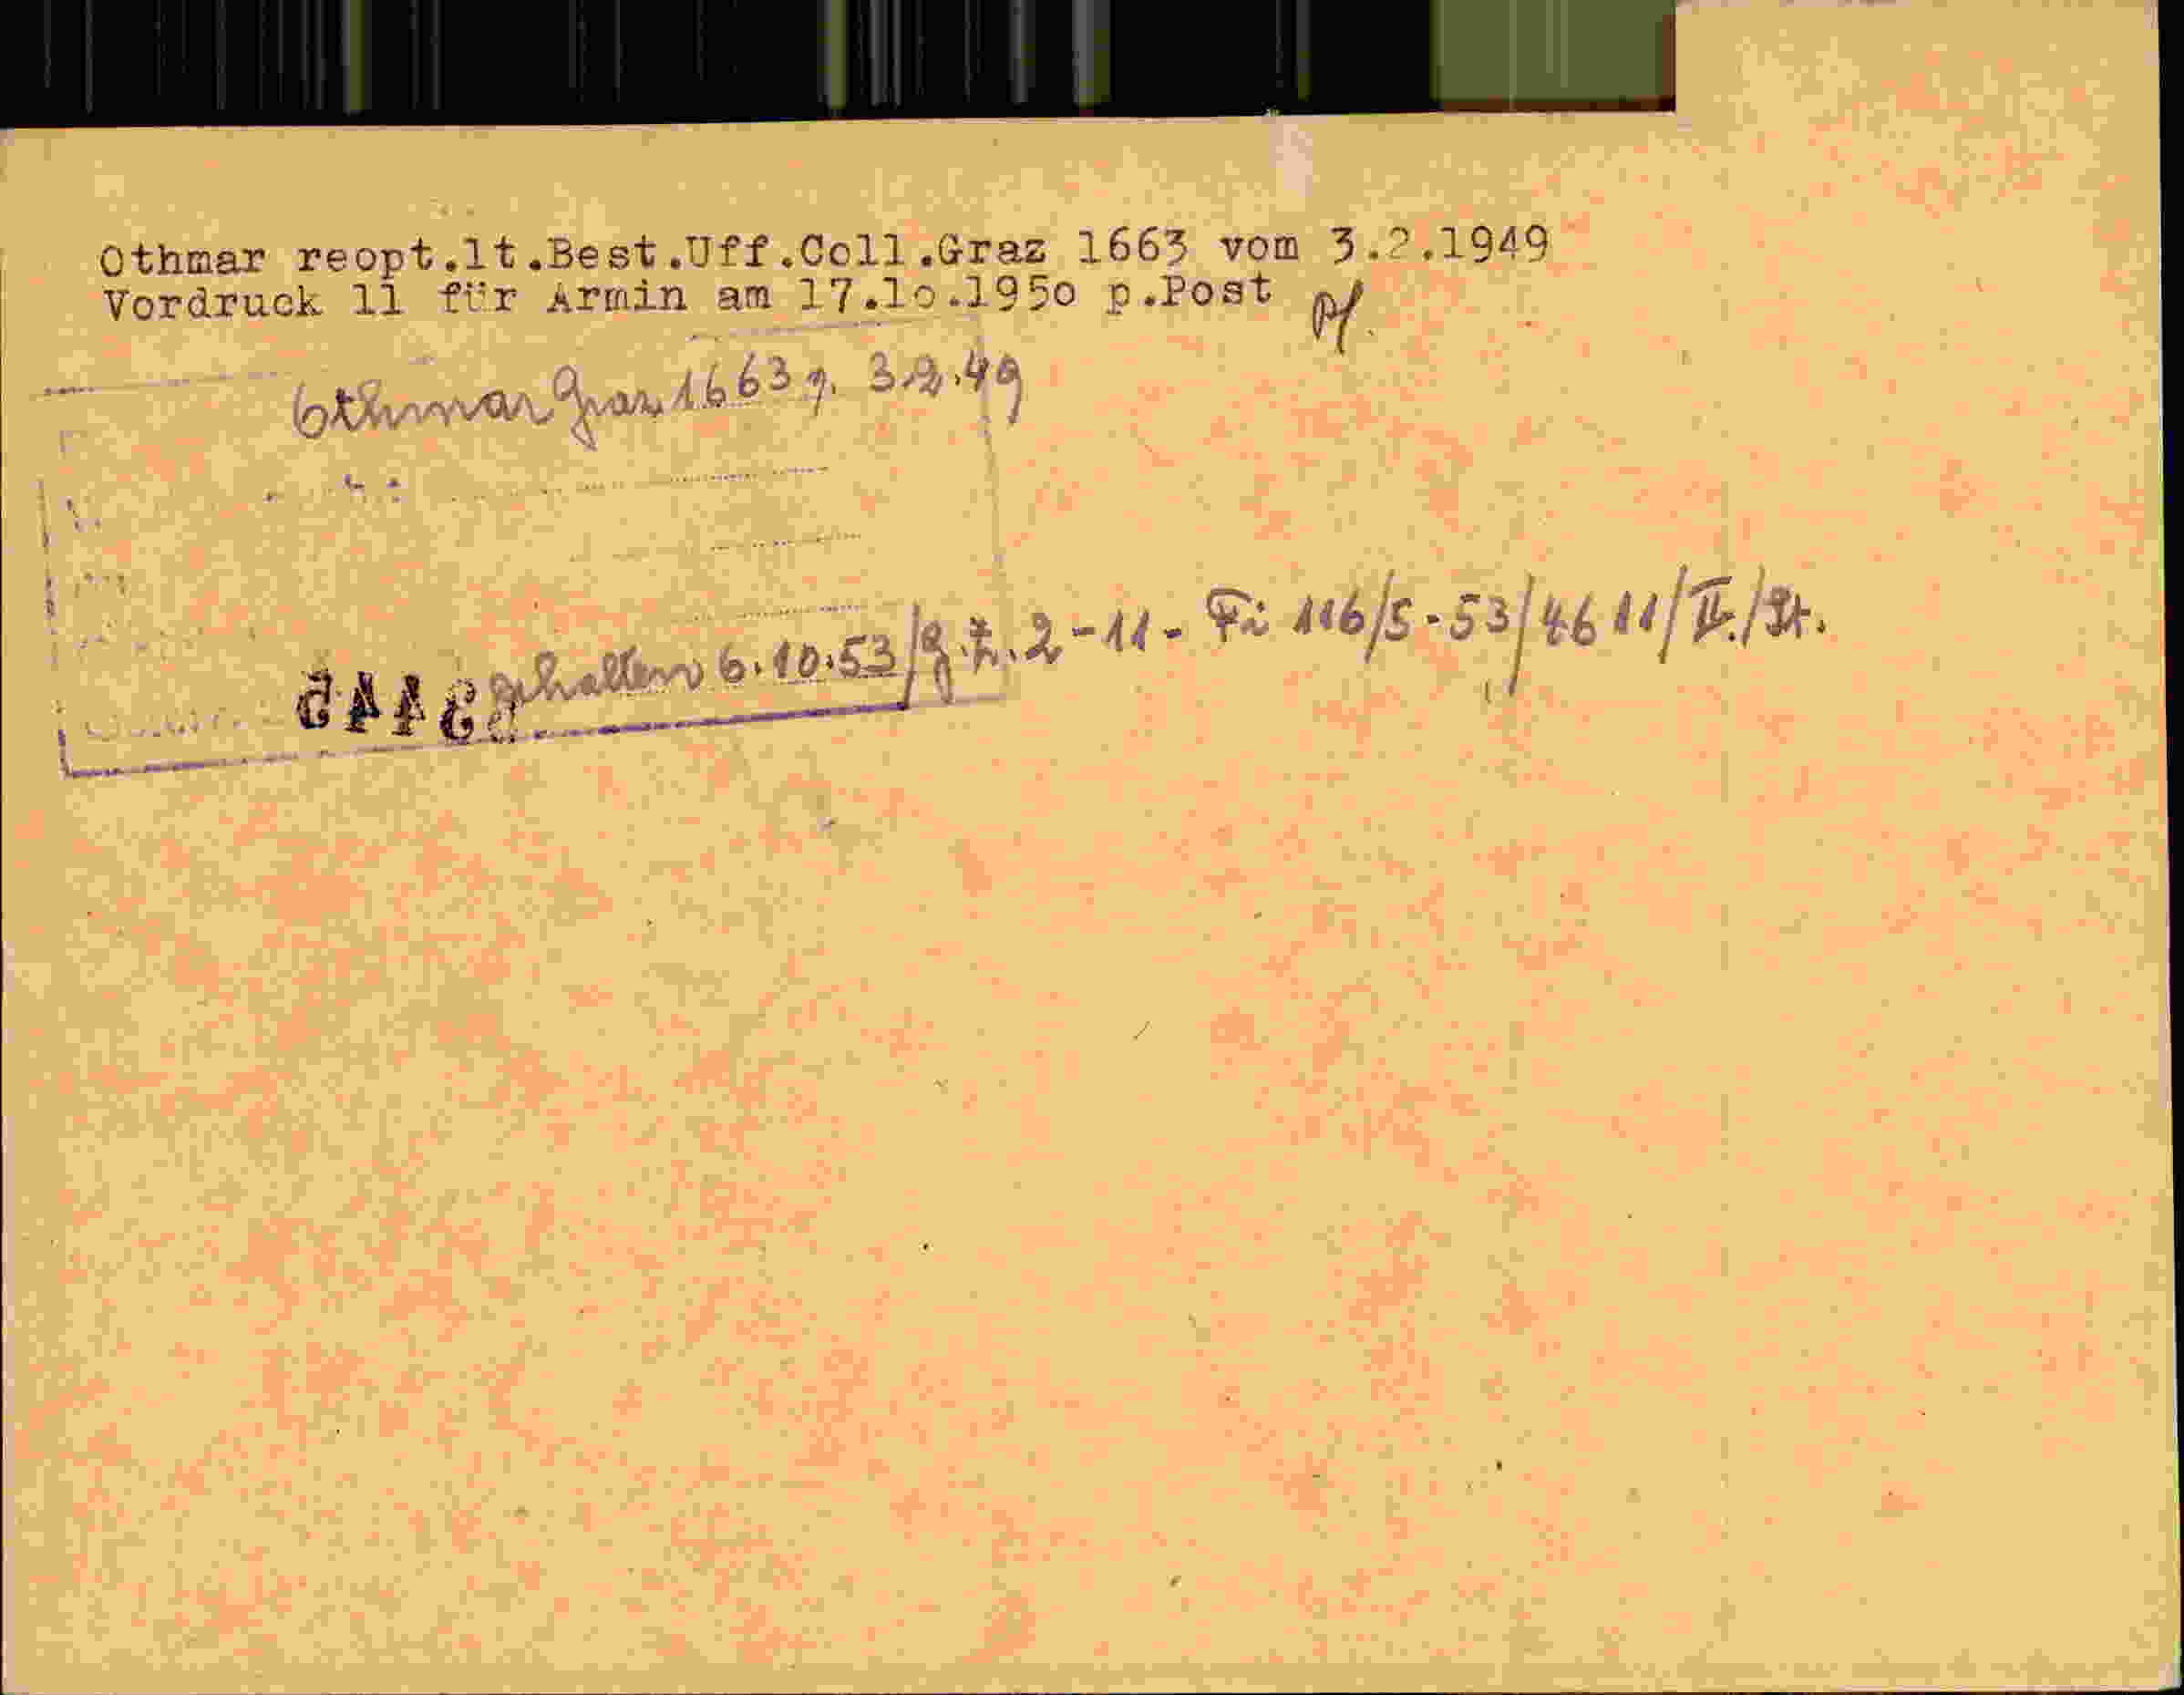 Othmar reopt.lt.Best.Uff.Coll.Graz 1663 vom 3.2.1949
Vordruck 11 für Armin am 17.1o.195o p.Post
Othmar Graz 1663 v. 3.2.49
gehalten 6.10.53/g.Z. 2-11- Fi 116/5-53/4611/II./St.